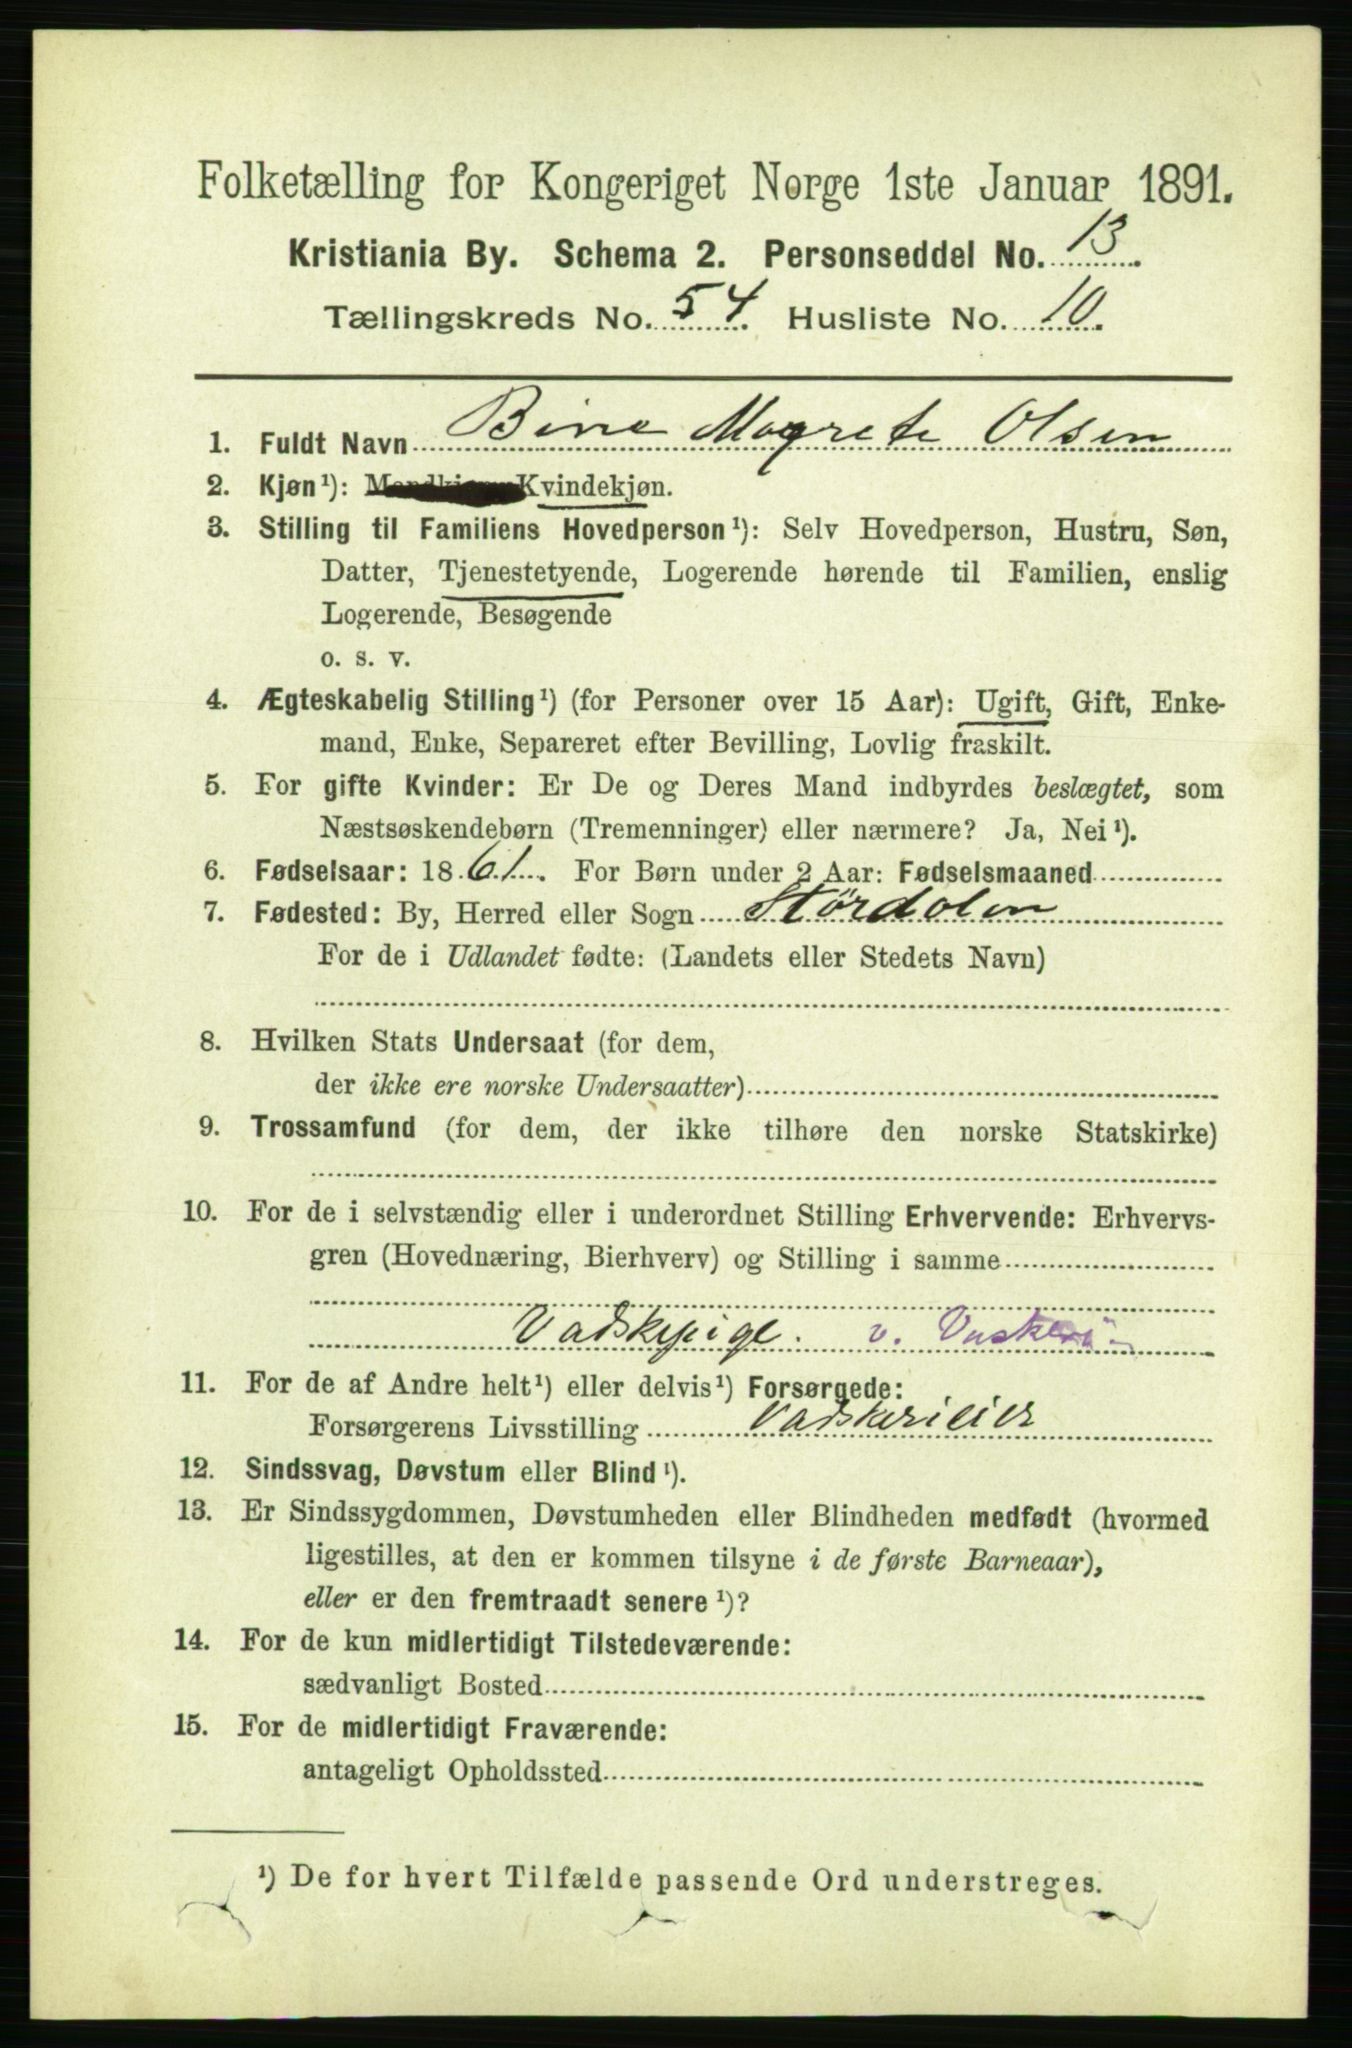 Folketælling for Kongeriget Norge 1ste Januar 1891.
Kristiania By. Schema 2. Personseddel No. 13.
Tællingskreds No. 54. Husliste No. 10.
1. Fuldt Navn Bine Magrete Olsen
2. Kjøn¹): Mandkjøn, Kvindekjøn.
3. Stilling til Familiens Hovedperson¹): Selv Hovedperson, Hustru, Søn,
Datter, Tjenestetyende, Logerende hørende til Familien, enslig
Logerende, Besøgende
o. s. v.
4. Ægteskabelig Stilling¹) (for Personer over 15 Aar): Ugift, Gift, Enke-
mand, Enke, Separeret efter Bevilling, Lovlig fraskilt.
5. For gifte Kvinder: Er De og Deres Mand indbyrdes beslægtet, som
Næstsøskendebørn (Tremenninger) eller nærmere? Ja, Nei¹).
6. Fødselsaar: 1861. For Børn under 2 Aar: Fødselsmaaned
7. Fødested: By, Herred eller Sogn Størdolen
For de i Udlandet fødte: (Landets eller Stedets Navn)
8. Hvilken Stats Undersaat (for dem,
der ikke ere norske Undersaatter)
9. Trossamfund (for dem, der ikke tilhøre den norske Statskirke)
10. For de i selvstændig eller i underordnet Stilling Erhvervende: Erhvervs-
gren (Hovednæring, Bierhverv) og Stilling i samme
Vadskepige. v. Vaskeri
11. For de af Andre helt¹) eller delvis¹) Forsørgede:
Forsørgerens Livsstilling Vadskerieier
12. Sindssvag, Døvstum eller Blind¹).
13. Er Sindssygdommen, Døvstumheden eller Blindheden medfødt (hvormed
ligestilles, at den er kommen tilsyne i de første Barneaar),
eller er den fremtraadt senere¹)?
14. For de kun midlertidigt Tilstedeværende:
sædvanligt Bosted
15. For de midlertidigt Fraværende:
antageligt Opholdssted
¹) De for hvert Tilfælde passende Ord understreges.